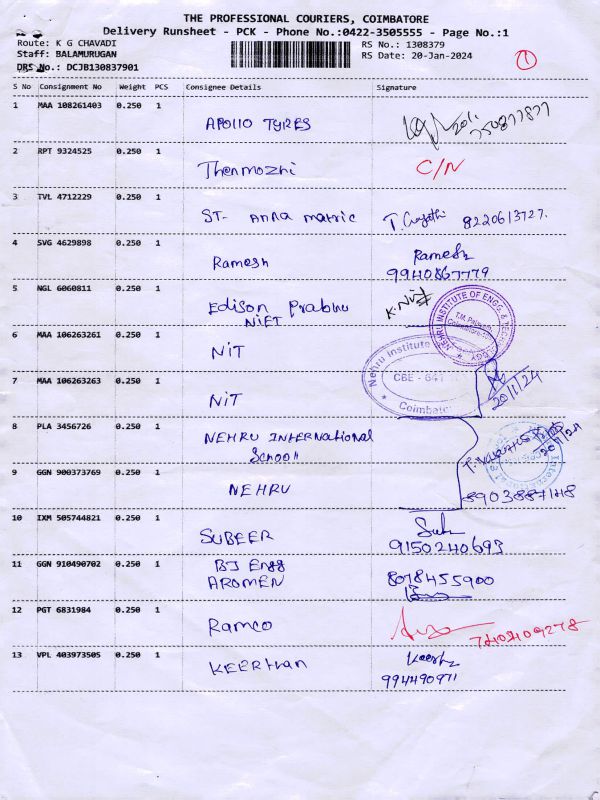 THE PROFESSIONAL COURIERS, COIMBATORE
Delivery Runsheet - PCK - Phone No.:0422-3505555 - Page No.:1
Route: K G CHAVADI
RS No.: 1308379
Staff: BALAMURUGAN
RS Date: 20-Jan-2024
DRS No.: DCJB130837901
1
S No Consignment No Weight PCS Consignee Details Signature
1 MAA 108261403 0.250 1
APOllO TYRES
2 RPT 9324525 0.250 1
Thenmozhi C/N
3 TVL 4712229 0.250 1
ST- Anna matric T. 8220613727.
4 SVG 4629898 0.250 1
Ramesh Ramesh
5 NGL 6060811 0.250 1
Edison Prabhu
NIET
NEHRU INSTITUTE OF ENGG. & TECH
6 MAA 106263261 0.250 1
NIT
Nehru Institute
CBE - 641
Coimbatore
7 MAA 106263263 0.250 1
NIT 20/1/24
8 PLA 3456726 0.250 1
NEHRU INTERNATIONAL
School
9 GGN 900373769 0.250 1
NEHRU 8903887148
10 IXM 505744821 0.250 1
SUBEER
9150240693
11 GGN 910490702 0.250 1
BJ Engg
AROMEN 8078455900
12 PGT 6831984 0.250 1
Ramco
13 VPL 403973505 0.250 1
KEERthan
994490971